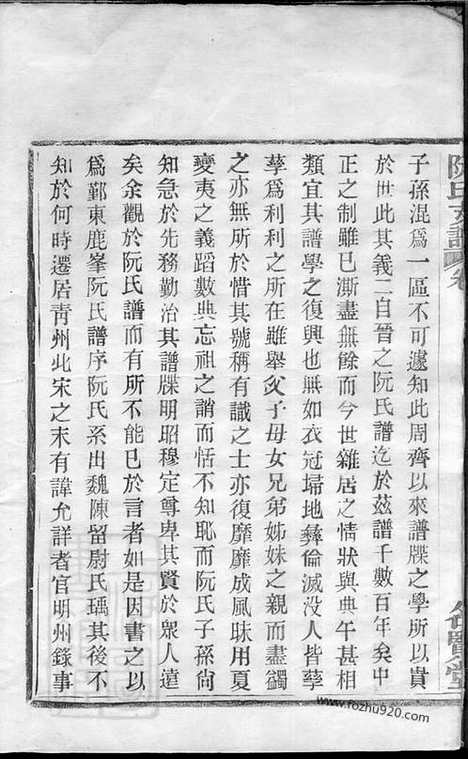 子孫混爲一區不可遽知此周齊以來譜牒之學所以貴
於世此其義二自晉之阮氏譜迄於茲譜千數百年矣中
正之制雖已澌盡無餘而今世雜居之情狀與典午甚相
類宜其譜學之復興也無如衣冠埽地彝倫滅没人皆孳
孳爲利利之所在雖舉父子母女兄弟姊妹之親而盡蠲
之亦無所於惜其號稱有識之士亦復靡靡成風昧用夏
變夷之義蹈數典忘祖之誚而恬不知恥而阮氏子孫尙
知急於先務勤治其譜牒明昭穆定尊卑其賢於眾人遠
矣余觀於阮氏譜而有所不能已於言者如是因書之以
爲鄞東鹿峯阮氏譜序阮氏系出魏陳留尉氏瑀其後不
知於何時遷居青州此宋之末有諱允詳者官明州錄事
阮氏支譜
卷
名賢堂
www.fozhu920.com